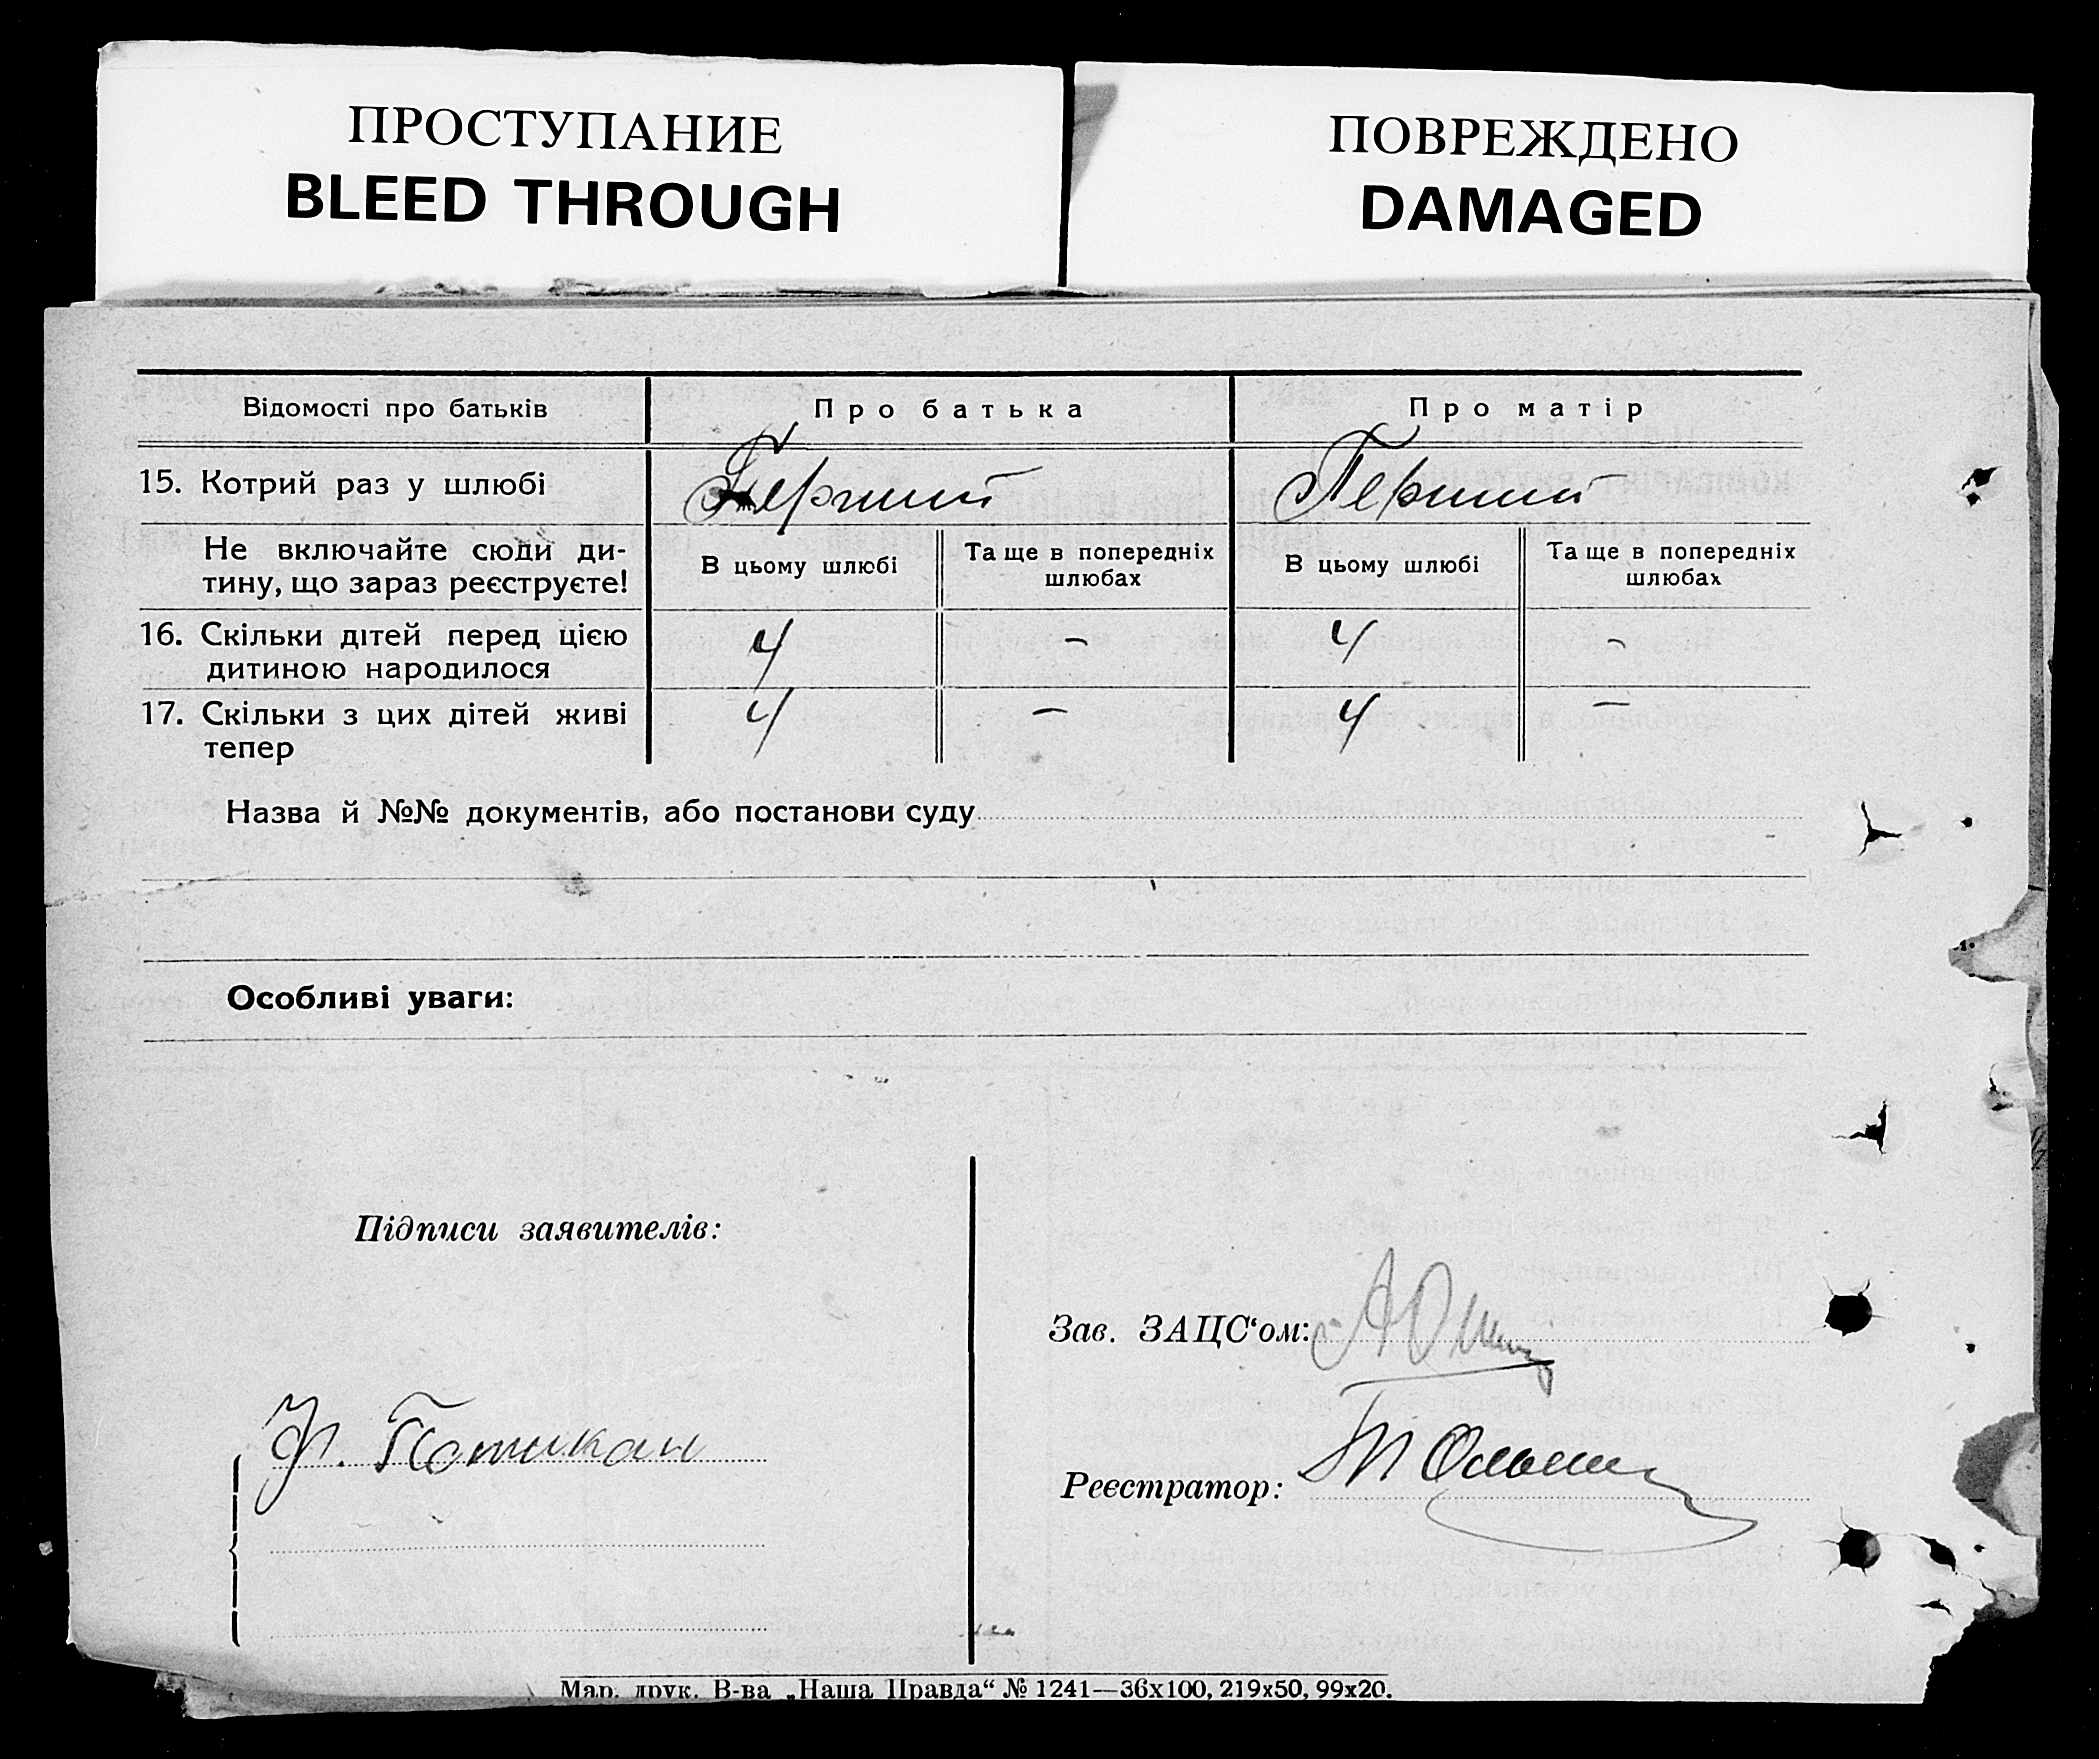 ПРОСТУПАНИЕ
BLEED THROUGH
ПОВРЕЖДЕНО
DAMAGED
Відомості про батьків
Про батька
Про матір
15. Котрий раз у шлюбі
Перший
Перший
Не включайте сюди ди-
тину, що зараз реєструєте!
В цьому шлюбі
Та ще в попередніх
шлюбах
В цьому шлюбі
Та ще в попередніх
шлюбах
16. Скільки дітей перед цією
дитиною народилося
4
–
4
–
17. Скільки з цих дітей живі
тепер
4
–
4
–
Назва й №№ документів, або постанови суду
Особливі уваги:
Підписи заявителів:
Зав. ЗАЦС‘ом:
Реєстратор:
Мар. друк. В-ва „Наша Правда“ № 1241—36х100, 219х50, 99х20.